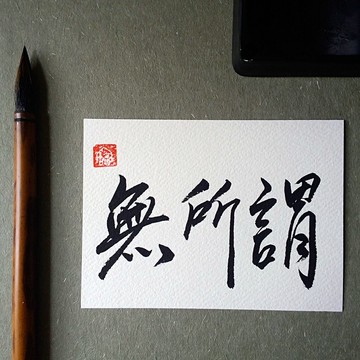 無所謂